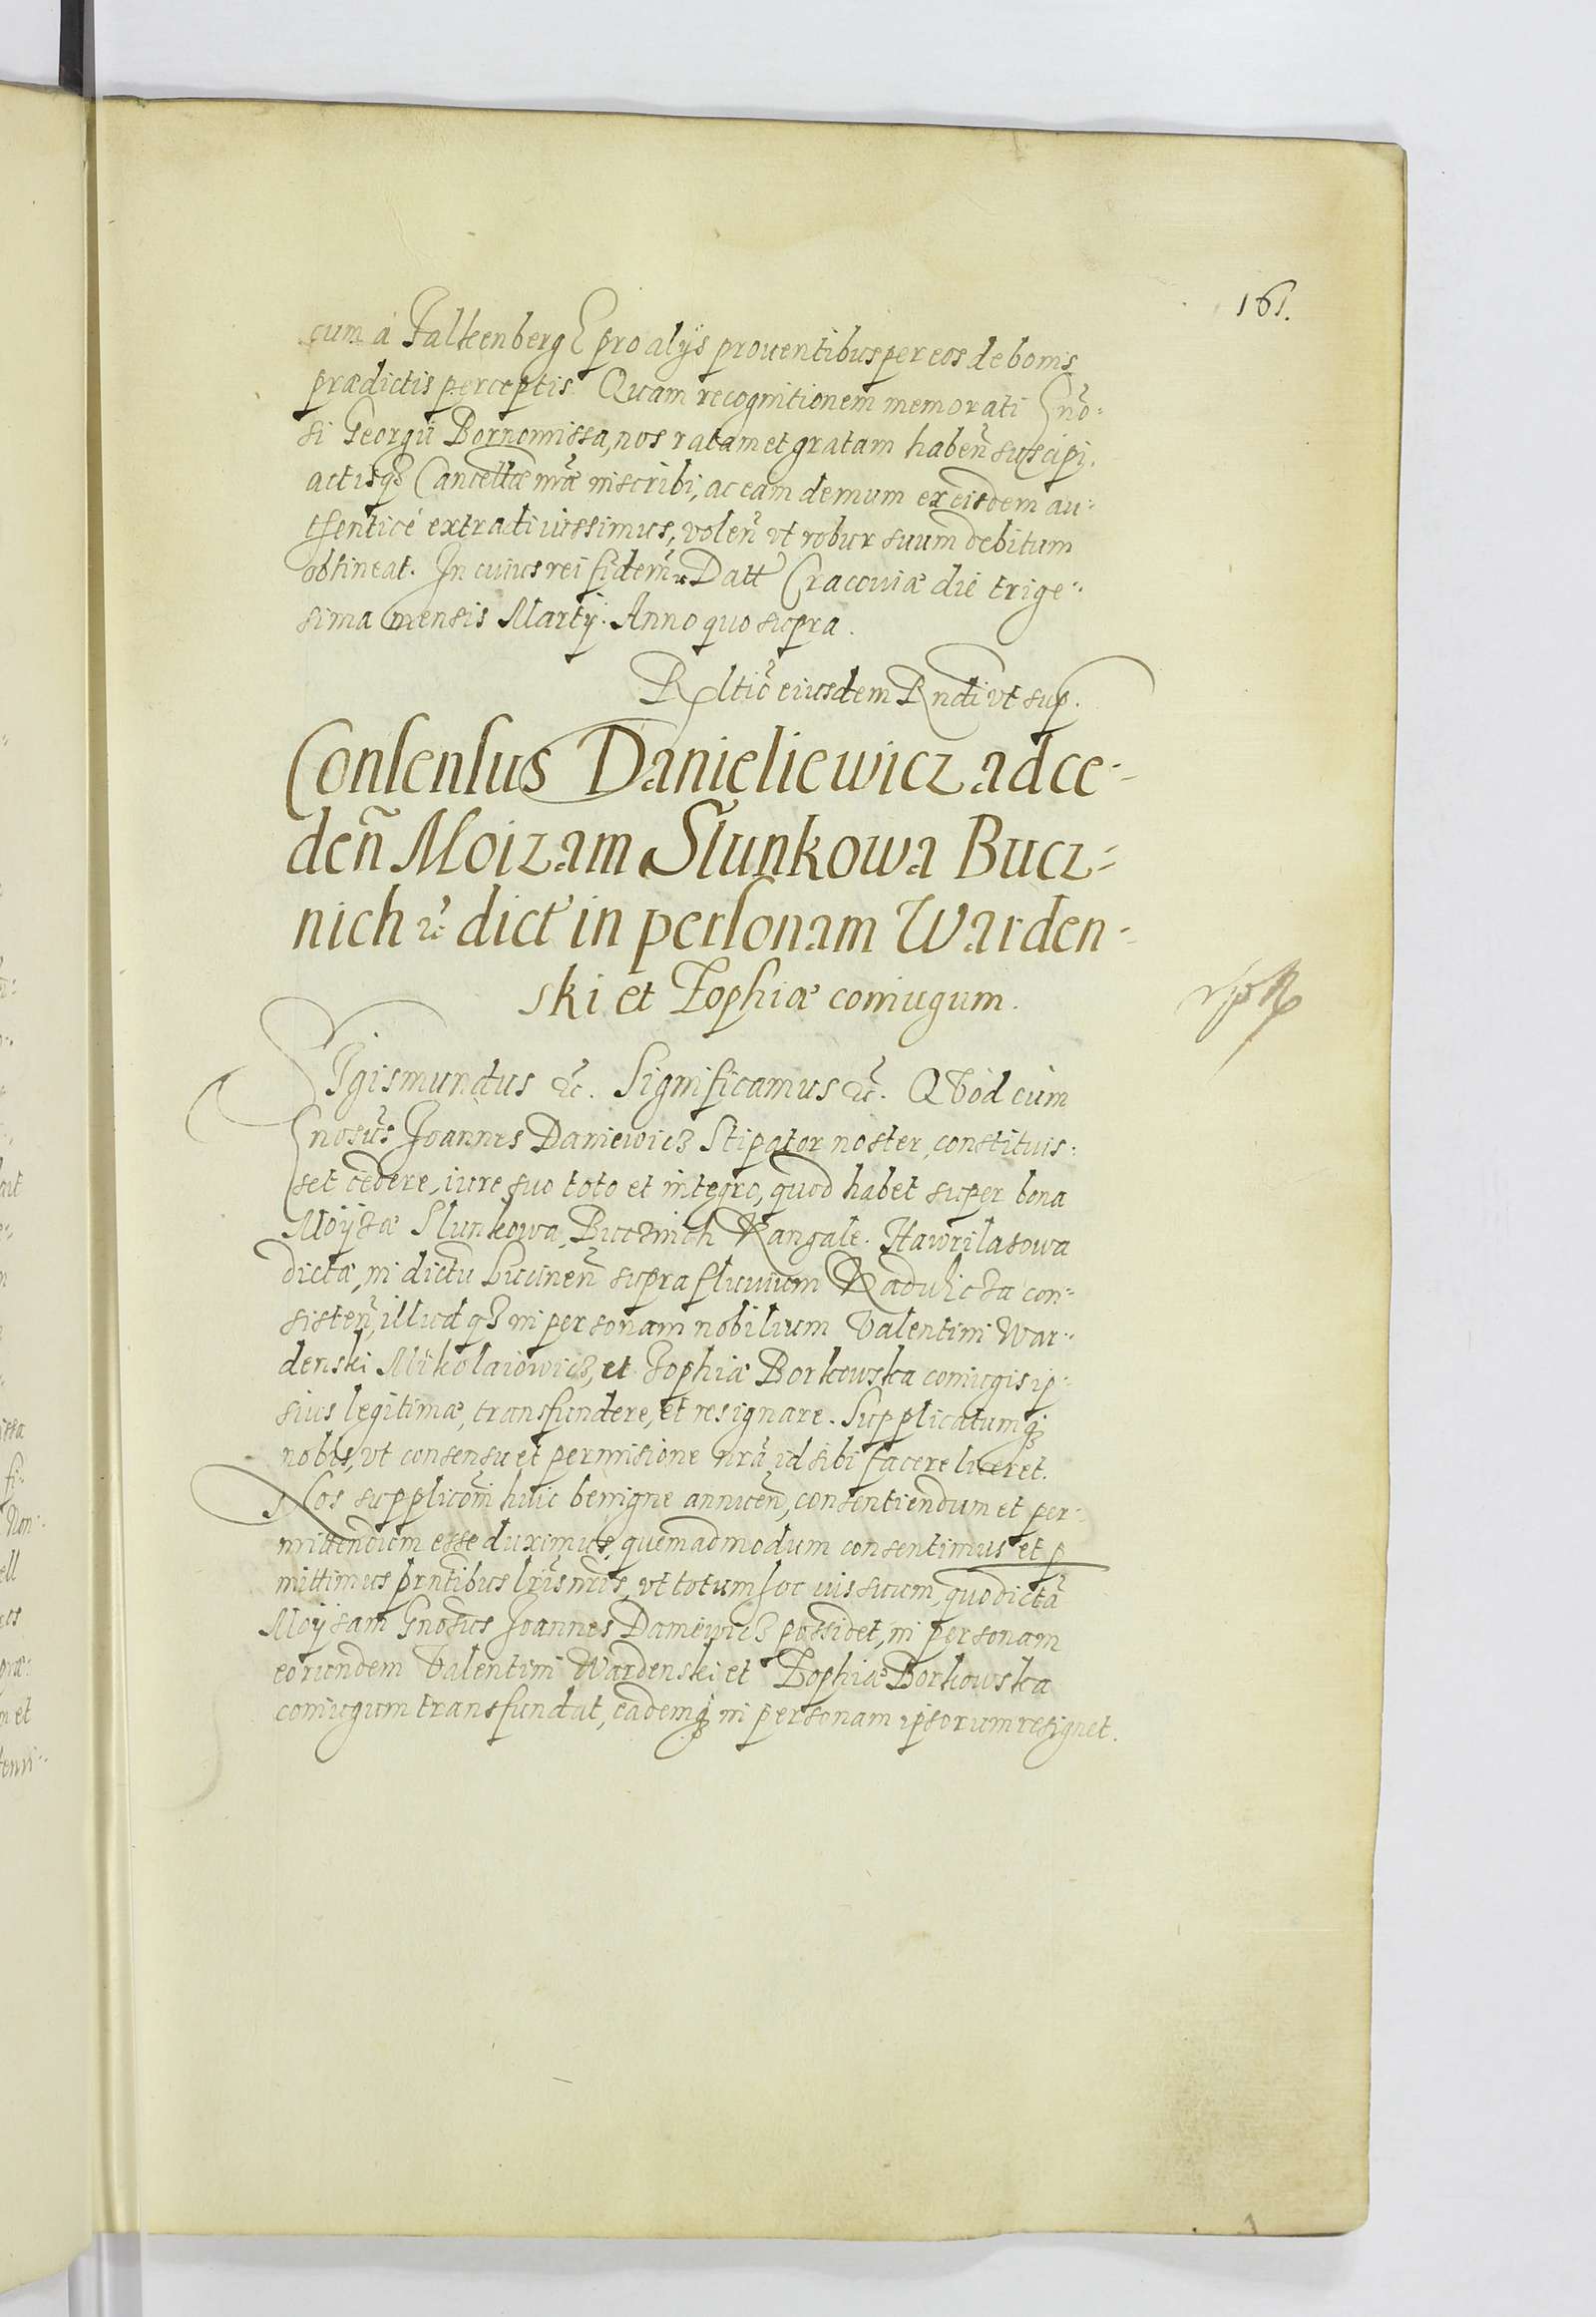 161.
cum á Falkenberg pro alijs prouentibus per eos de bonis
prædictis perceptis. Quam recognitionem memorati Gnō-
si Georgii Bornomissa, nos ratam et gratam habeñ suscipi,
actisq3 Cancellæ nr̃æ inscribi, ac eam demum ex eisdem au-
thenticé extradi iussimus, voleñ vt robur suum debitum
obtineat. In cuius rei fidem &c Datt Cracouiæ die trige-
sima mensis Martij. Anno quo supra.
Rltiõ eiusdem Rndi vt sup.
Consensus Danieliewicz ad ce-
deñ Moizam Slunkowa Bucz-
nich &c dict in personam Warden-
ski et Zophiæ coniugum.
SIgismundus &c. Significamus &c. QVòd cùm
Gnosus Joannes Daniewicz Stipator noster, constituis-
set cedere, iure suo toto et integro, quod habet super bona
Moijzæ Slunkowa, Bucznich Rangale. Hawrilasowa
dicta, in dictu Lucineñ supra fluuium Radulicza con-
sisteñ, illudq3 in personam nobilium Valentini War-
denski Mikolaiowicz, et Zophiæ Borkowska coniugis ip-
sius legitimæ, transfundere, et resignare. Supplicatumq3
nobis, vt consensu et permisione nr̃a id sibi facere liceret.
Nos supplicõni huic benigne annueñ, consentiendum et per-
mittendum esse duximus, quemadmodum consentimus et p
mittimus prñtibus lr̃is nr̃is, vt totum hoc ius suum, quo dictã
Moijsam Gnosus Joannes Daniewicz possidet, in personam
eorundem Valentini Wardenski et Zophiæ Borkowska
coniugum transfundat, eademq3 in personam ipsorum resignet.